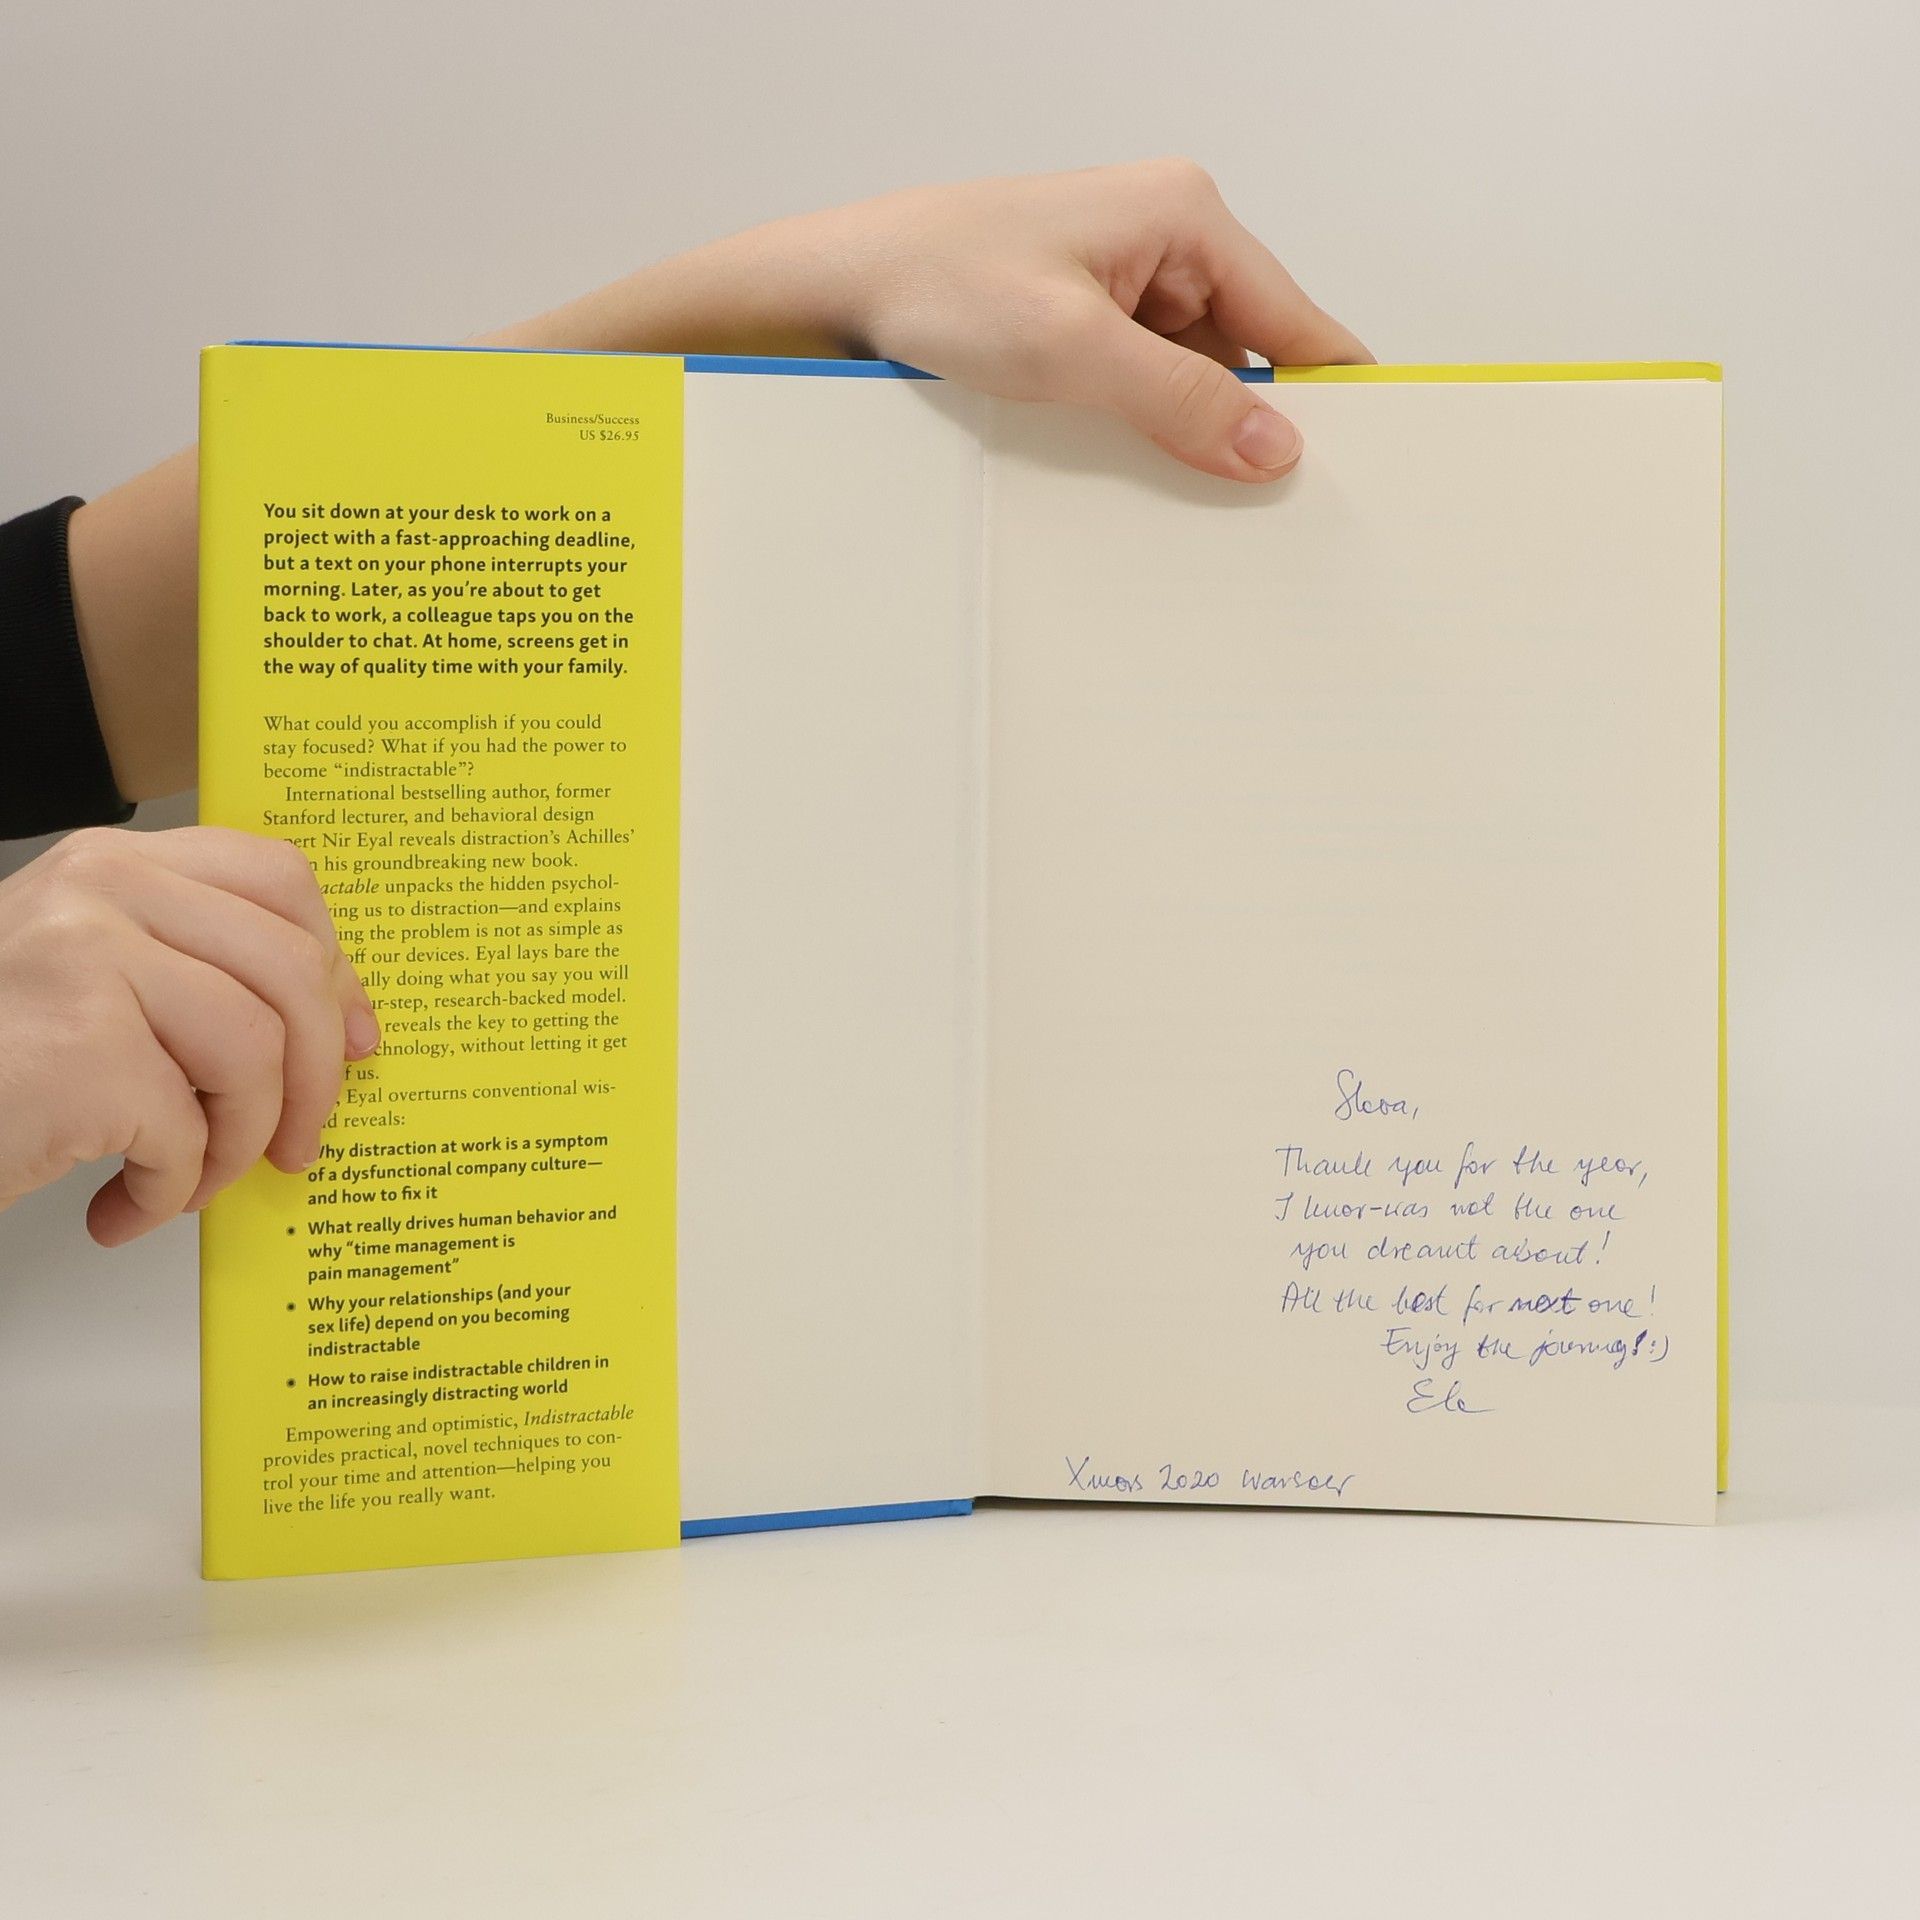 Business/Success
US $26.95
You sit down at your desk to work on a
project with a fast-approaching deadline,
but a text on your phone interrupts your
morning. Later, as you’re about to get
back to work, a colleague taps you on the
shoulder to chat. At home, screens get in
the way of quality time with your family.
What could you accomplish if you could
stay focused? What if you had the power to
become “indistractable”?
International bestselling author, former
Stanford lecturer, and behavioral design
Nir Eyal reveals distraction’s Achilles’
his groundbreaking new book.
unpacks the hidden psychol-
us to distraction—and explains
the problem is not as simple as
off our devices. Eyal lays bare the
doing what you say you will
research-backed model.
reveals the key to getting the
without letting it get
us.
, Eyal overturns conventional wis-
reveals:
Why distraction at work is a symptom
of a dysfunctional company culture—
and how to fix it
• What really drives human behavior and
why “time management is
pain management”
• Why your relationships (and your
sex life) depend on you becoming
indistractable
• How to raise indistractable children in
an increasingly distracting world
Empowering and optimistic, Indistractable
provides practical, novel techniques to con-
trol your time and attention—helping you
live the life you really want.
Thank you for the year,
I know-was not the one
you dreamt about!
All the best for next one!
Enjoy the journey! :)
Ela
Xmas 2020 Warsaw